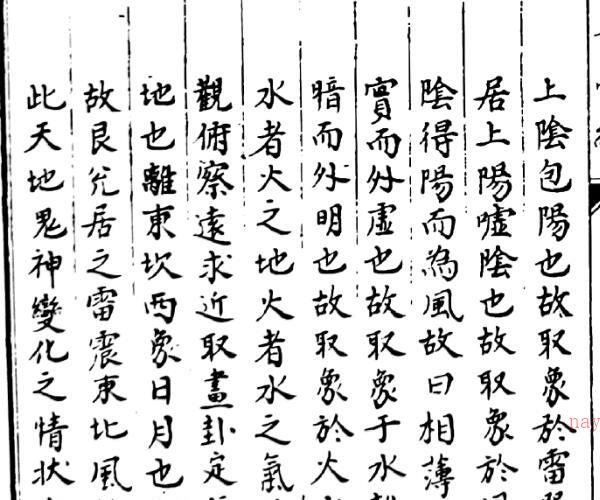 上陰包陽也故取象於雷
居上陽噓陰也故取象於
陰得陽而為風故曰相薄
實而外虛也故取象于水
暗而外明也故取象於火
水者火之地火者水之氣
觀俯察遠求近取畫卦定
地也離東坎西象日月也
故艮兊居之雷震東北風
此天地鬼神變化之情狀
nay